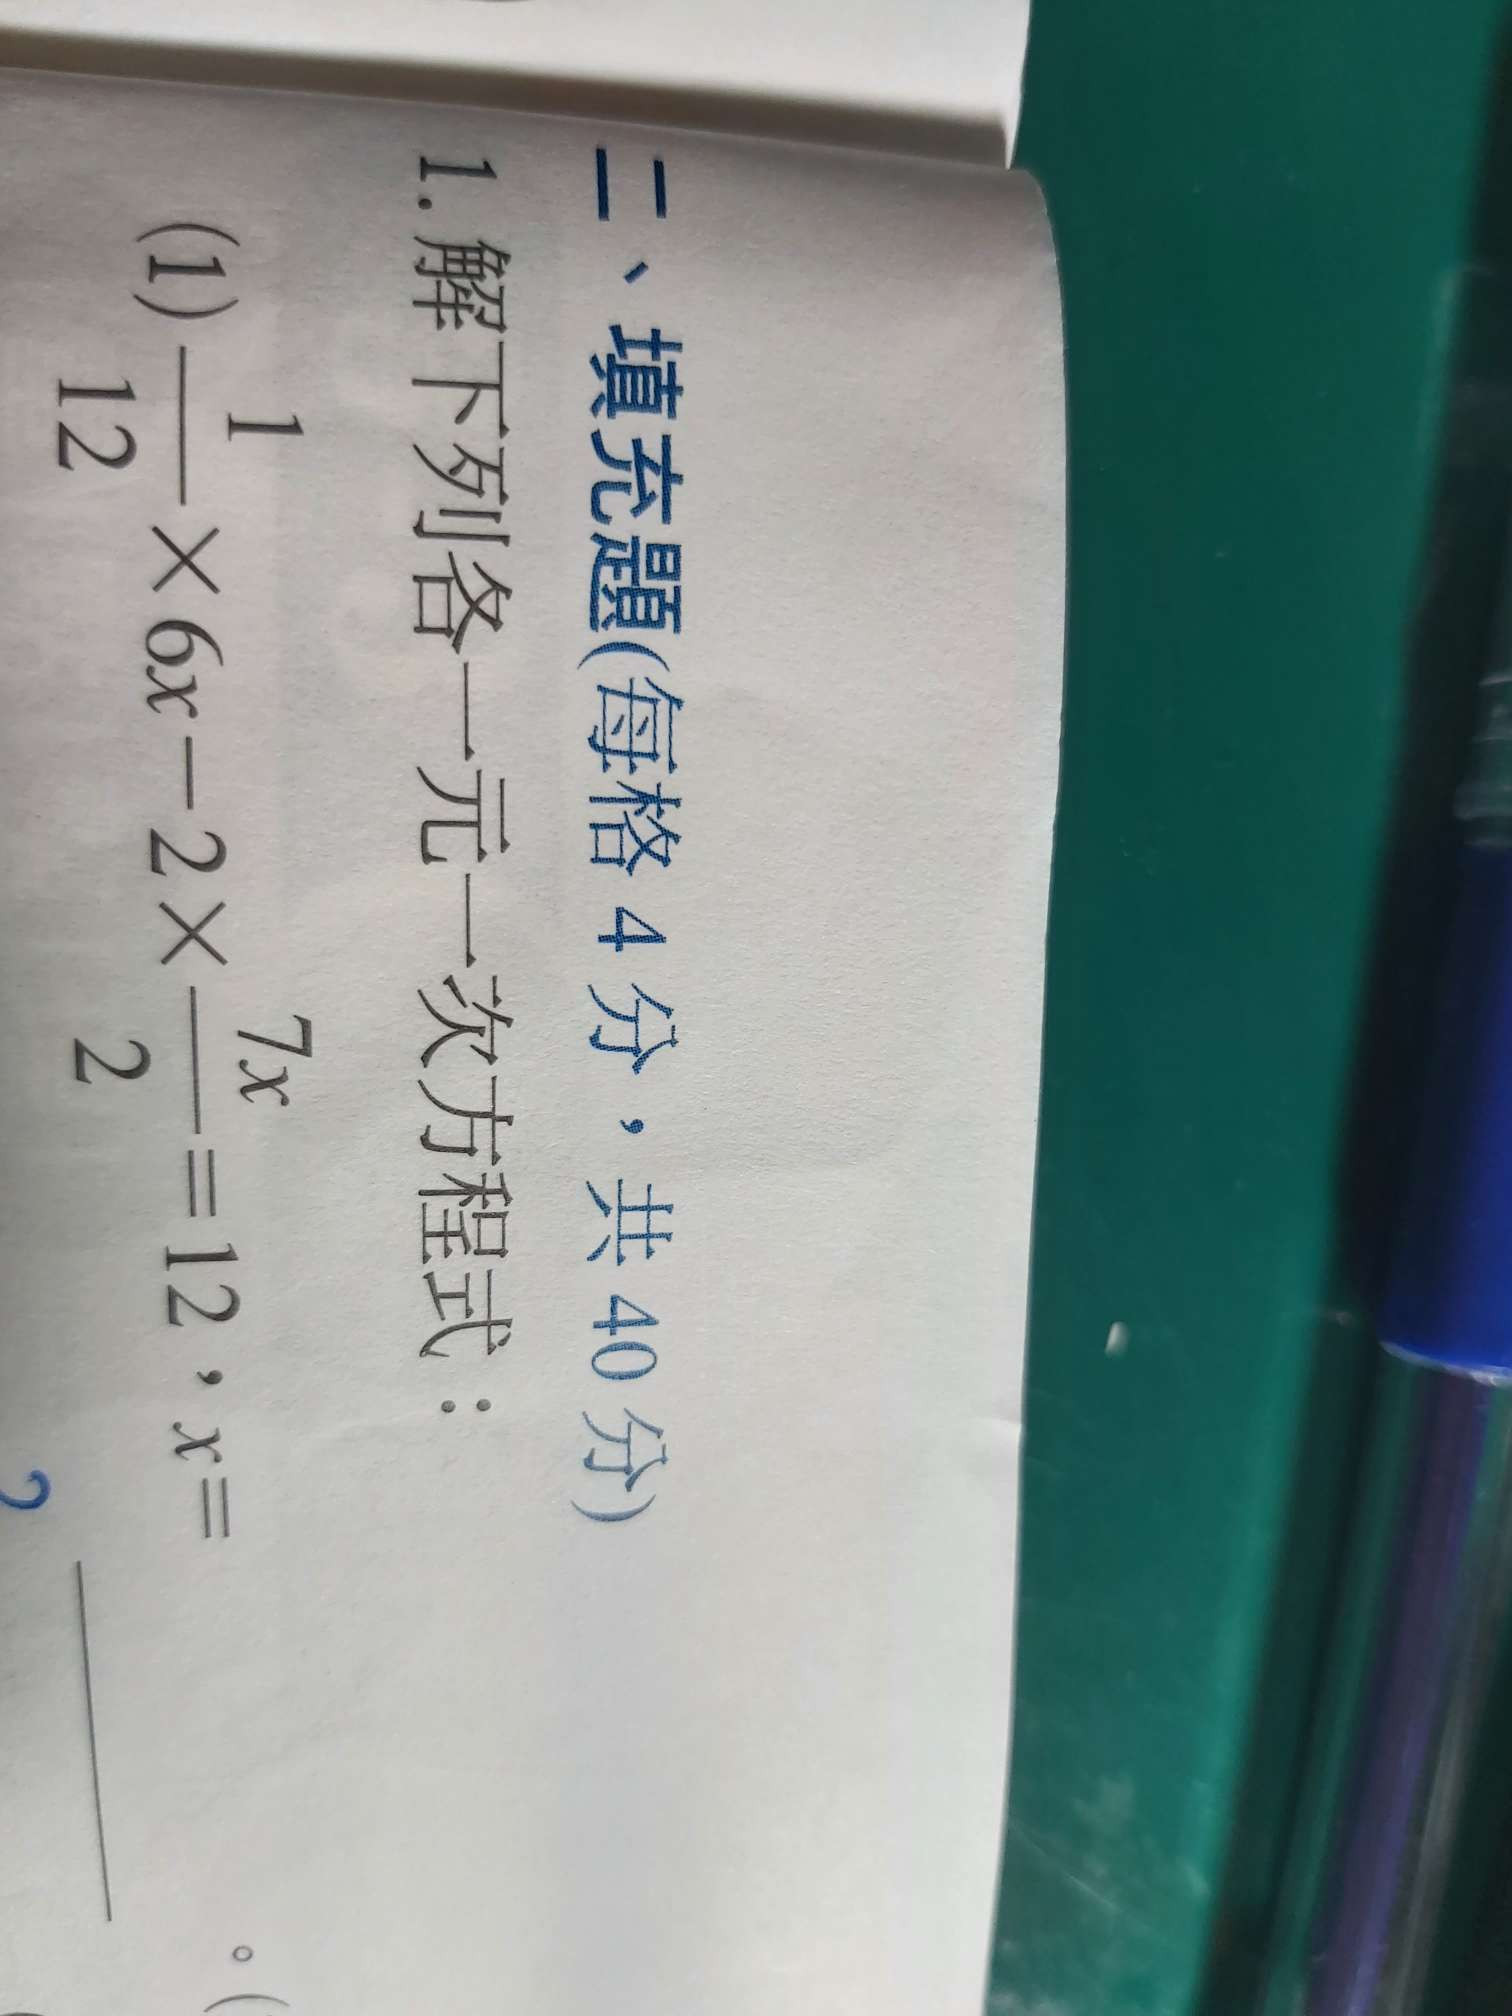 二、填充題(每格 4 分，共 40 分)
1. 解下列各一元一次方程式：
(1) 1/12 × 6x − 2 × 7x/2 = 12，x = ＿＿＿。(
2